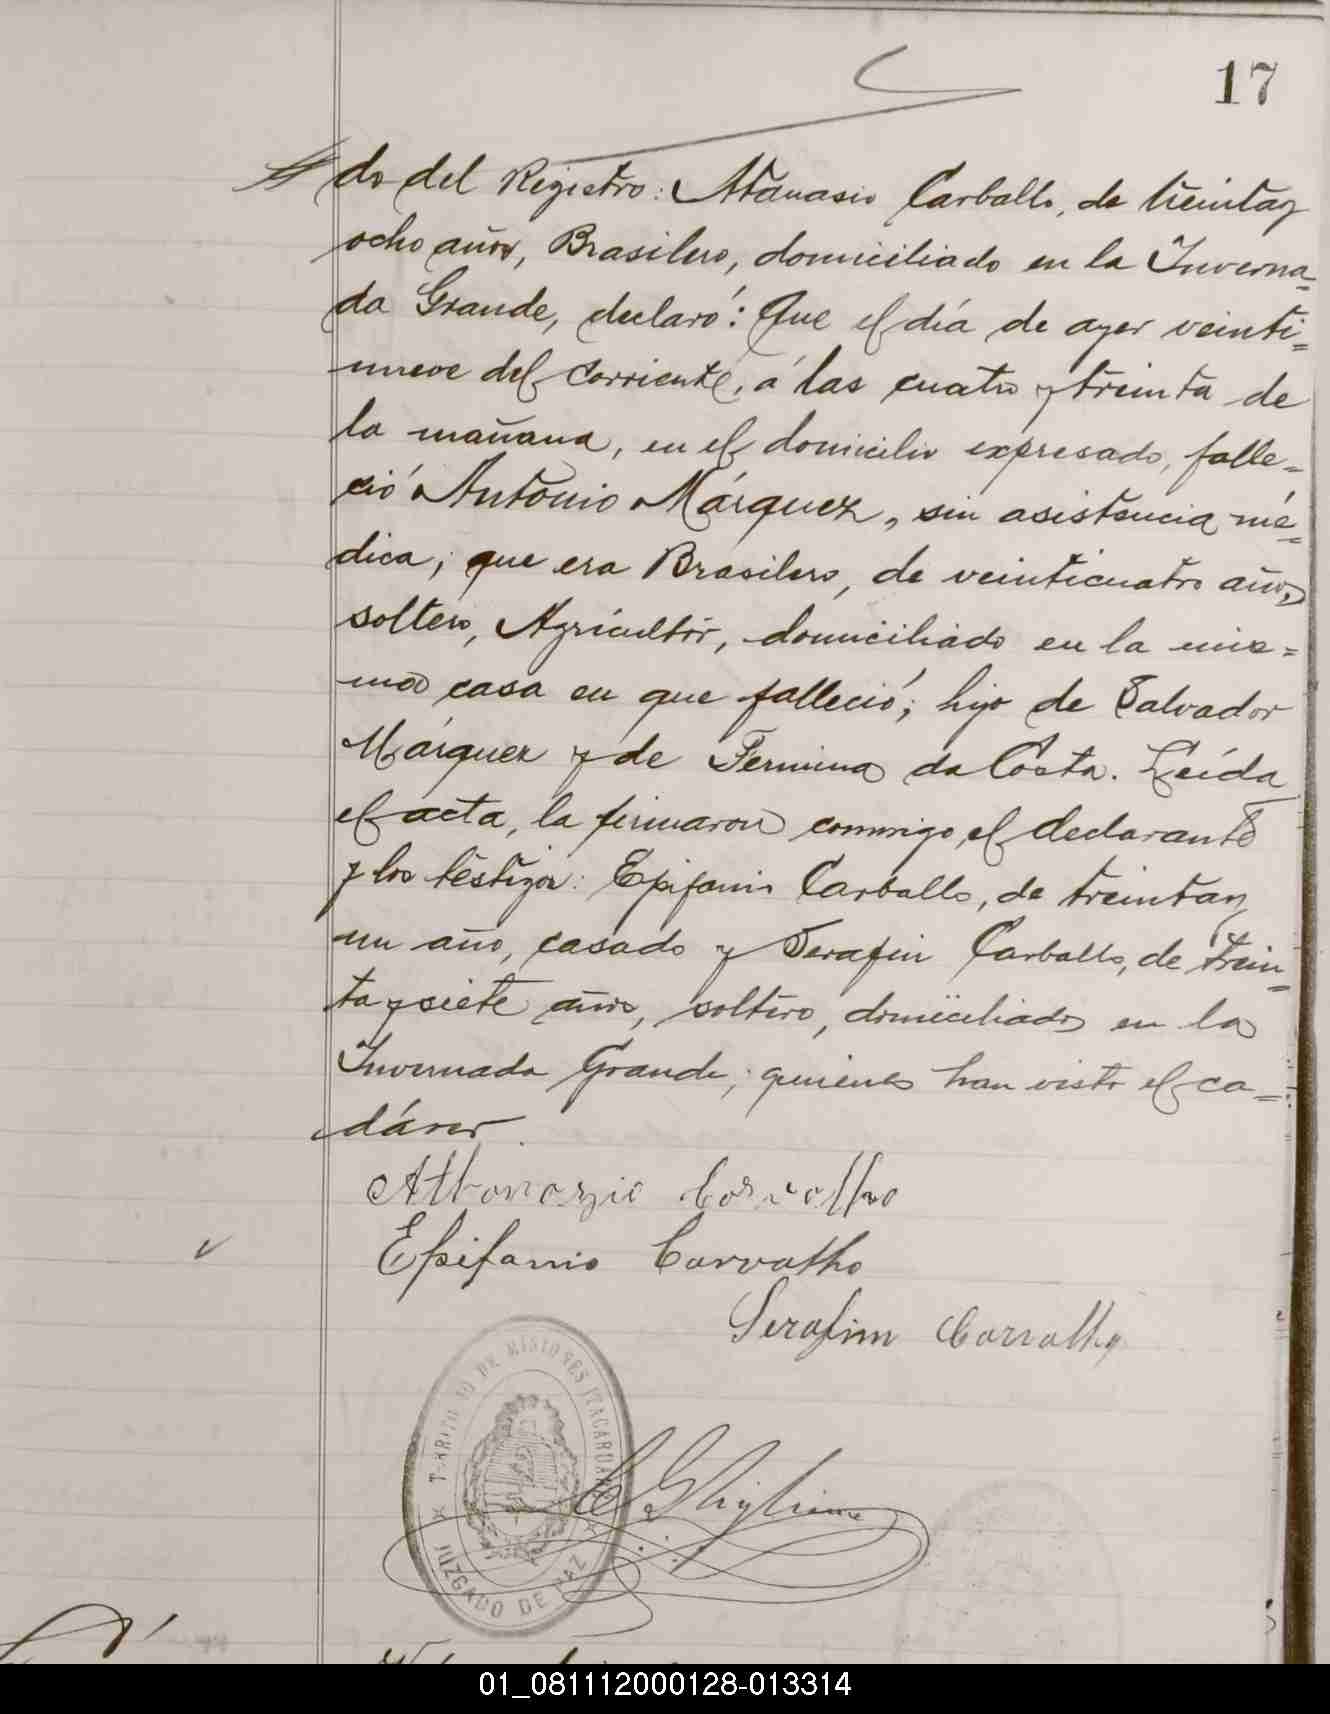 17
do del Registro: Atanasio Carballo, de treinta y
ocho años, Brasilero, domiciliado en la Inverna=
da Grande, declaró: Que el día de ayer veinti=
nueve del corriente, á las cuatro y treinta de
la mañana, en el domicilio expresado, falle=
ció Antonio Márquez, sin asistencia mé=
dica; que era Brasilero, de veinticuatro años,
soltero, Agricultor, domiciliado en la mis=
ma casa en que falleció; hijo de Salvador
Márquez y de Fermina da Costa. Leída
el acta, la firmaron conmigo, el declarante
y los testigos: Epifanio Carballo, de treinta y
un año, casado y Serafin Carballo, de trein=
ta y siete años, soltero, domiciliados en la
Invernada Grande; quienes han visto el ca=
dáver.
Athanazio Carvalho
Epifanio Carvalho
Serafim Carvalho
TERRITORIO DE MISIONES ITACARUARE
JUZGADO DE PAZ
01_081112000128-013314